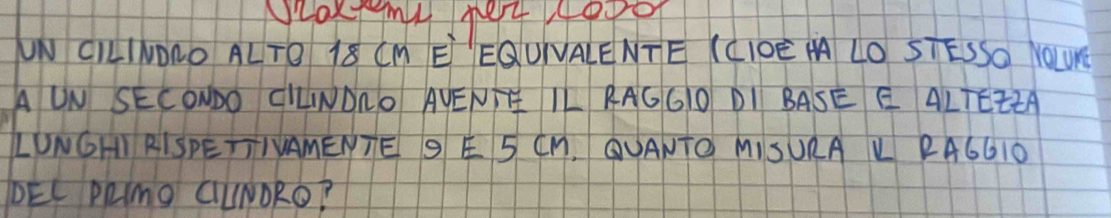 per
UN CILINDRO ALTO 18 CM E' EQUIVALENTE (CIOE HA LO STESSO VOLUME
A UN SECONDO CILINDRO AVENTE IL RAGGIO DI BASE E ALTEZZA
LUNGHI RISPETTIVAMENTE 9 E 5 CM. QUANTO MISURA IL RAGGIO
DEL PRIMO CILINDRO?